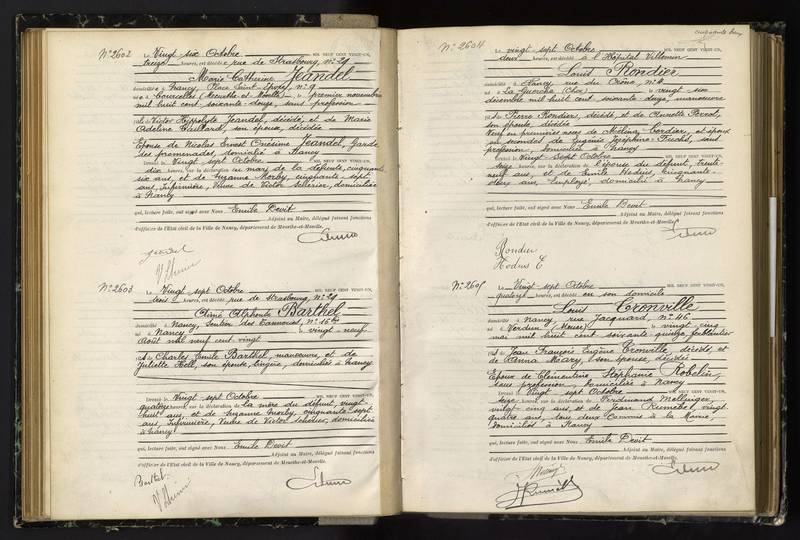 N° 2602
Le Vingt six Octobre MIL NEUF CENT VINGT-UN,
treize heures, est décédée rue de Strasbourg, n° 29
Marie Catherine Jeandel
domiciliée à Nancy, Place Saint-Epvre, n° 9
née à Courcelles (Meurthe et Moselle) le premier novembre
mil huit cent soixante-douze, sans profession
fille de Victor Hippolyte Jeandel, décédé, et de Marie
Adeline Gaillard, son épouse, décédée
Epouse de Nicolas Ernest Onésime Jeandel, Garde
des promenades, domicilié à Nancy
Dressé le Vingt sept Octobre MIL NEUF CENT VINGT-UN,
dix heures, sur la déclaration de mari de la défunte, cinquante
six ans, et de Suzanne Morby, cinquante-sept
ans, Infirmière, Veuve de Victor domiciliée
à Nancy
qui, lecture faite, ont signé avec Nous Emile Devit
Adjoint au Maire, délégué faisant fonctions
d'officier de l'Etat civil de la Ville de Nancy, département de Meurthe-et-Moselle.
Jeandel
N° 2603
Le Vingt-sept Octobre MIL NEUF CENT VINGT-UN,
trois heures, est décédé rue de Strasbourg, n° 29
Alphonse Barthel
domicilié à Nancy, Sentier des Tanneries, n° 16
né à Nancy le vingt-neuf
Août mil neuf cent vingt
fils de Charles Emile Barthel, manoeuvre, et de
Juliette Hell, son épouse, lingère, domiciliés à Nancy
Dressé le Vingt sept Octobre MIL NEUF CENT VINGT-UN,
quatorze heures, sur la déclaration de la mère du défunt, vingt
huit ans, et de Suzanne Morby, cinquante sept
ans, Infirmière, Veuve de Victor domiciliées
à Nancy
qui, lecture faite, ont signé avec Nous Emile Devit
Adjoint au Maire, délégué faisant fonctions
d'officier de l'Etat civil de la Ville de Nancy, département de Meurthe-et-Moselle.
Barthel
N° 2604
Le vingt-sept Octobre MIL NEUF CENT VINGT-UN,
deux heures, est décédé à l'Hôpital Villemin
Louis Rondier
domicilié à Nancy rue du Crône, n° 4
né à La Guerche (Cher) le vingt six
décembre mil huit cent soixante-douze, manoeuvre
fils de Pierre Rondier, décédé, et de Perrot,
son épouse, décédée
Veuf en premières noces de Cordier, et époux
en secondes de Eugénie Joséphine sans
profession, domiciliée à Nancy
Dressé le Vingt-Sept Octobre MIL NEUF CENT VINGT-UN,
heures, sur la déclaration de l'épouse du défunt, trente
neuf ans, et de Emile Hodius, cinquante-
ans, employé, domicilié à Nancy
qui, lecture faite, ont signé avec Nous Emile Devit
Adjoint au Maire, délégué faisant fonctions
d'officier de l'Etat civil de la Ville de Nancy, département de Meurthe-et-Moselle.
Rondier
Hodius E
N° 2605
Le Vingt-sept Octobre MIL NEUF CENT VINGT-UN,
quatorze heures, est décédé en son domicile
Louis Cronville
domicilié à Nancy, rue Jacquard, n° 46
né à Verdun (Meuse) le vingt cinq
mai mil huit cent soixante-quinze, ferblantier
fils de Jean François Eugène Cronville, décédé, et
de Anna Mary, son épouse, décédée
Epoux de Clémentine Stéphanie Robelin,
sans profession, domiciliée à Nancy
Dressé le Vingt-sept Octobre MIL NEUF CENT VINGT-UN,
heures, sur la déclaration de Ferdinand Mellinger,
vingt cinq ans, et de Jean Remébel, vingt
quatre ans, tous deux Commis à la Mairie,
domiciliés à Nancy
qui, lecture faite, ont signé avec Nous Emile Devit
Adjoint au Maire, délégué faisant fonctions
d'officier de l'Etat civil de la Ville de Nancy, département de Meurthe-et-Moselle.